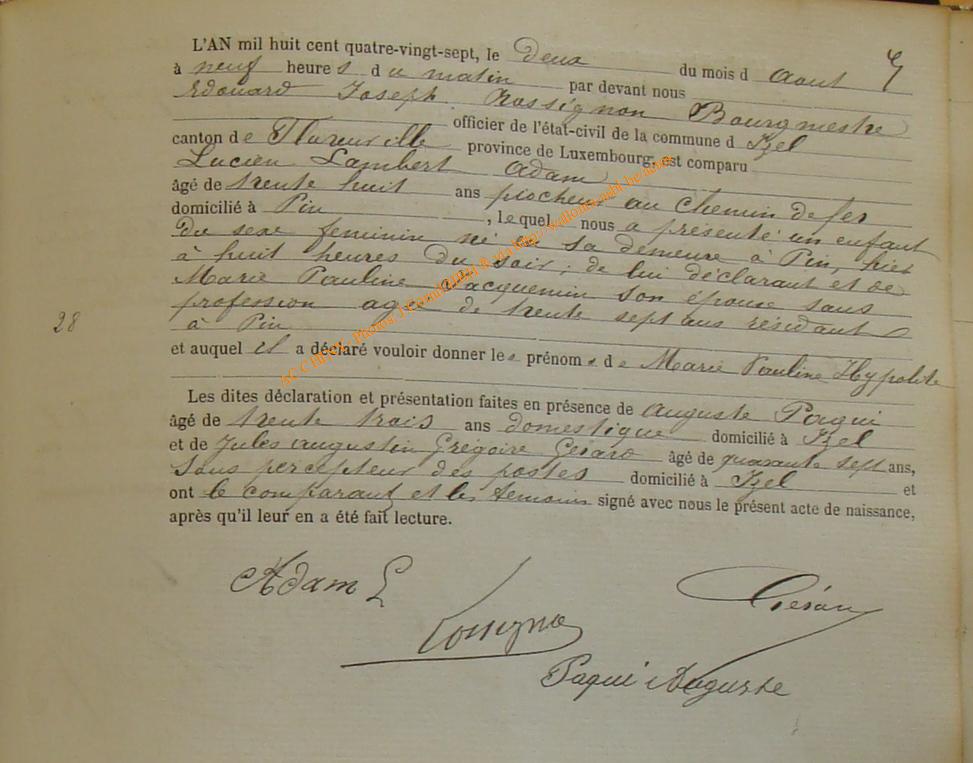 L'AN mil huit cent quatre-vingt-sept, le deux du mois d aout
à neuf heures du matin par devant nous
Edouard Joseph Rossignon Bourgmestre
officier de l'état-civil de la commune d Izel
canton de Florenville province de Luxembourg, est comparu
Lucien Lambert Adam
âgé de trente huit ans piocheur au chemin de fer
domicilié à Pin, lequel nous a présenté un enfant
du sexe feminin né en sa demeure à Pin, hier
à huit heures du soir, de lui déclarant et de
Marie Pauline Jacquemin son épouse sans
profession agée de trente sept ans résidant
à Pin
28
et auquel il a déclaré vouloir donner les prénoms de Marie Pauline Hypolite
Les dites déclaration et présentation faites en présence de Auguste Paqui
âgé de trente trois ans domestique domicilié à Izel
et de Jules Augustin Grégoire Gérard âgé de quarante sept ans,
sous percepteur des postes domicilié à Izel et
ont le comparant et les temoins signé avec nous le présent acte de naissance,
après qu'il leur en a été fait lecture.
Adam L
Gérard
Rossignon
Paqui Auguste